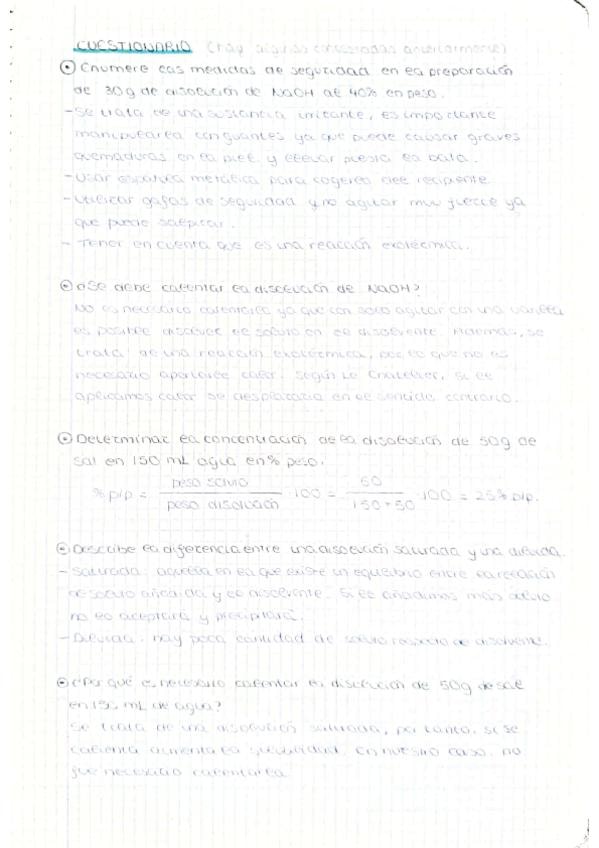 CUESTIONARIO (hay algunas contestadas anteriormente)
Enumere las medidas de seguridad en la preparación
de 30g de disolución de NaOH al 40% en peso.
- Se trata de una sustancia irritante, es importante
manipularla con guantes ya que puede causar graves
quemaduras en la piel y llevar puesta la bata.
- Usar espátula metálica para cogerlo del recipiente.
- Utilizar gafas de seguridad y no agitar muy fuerte ya
que puede salpicar.
- Tener en cuenta que es una reacción exotérmica.
¿Se debe calentar la disolución de NaOH?
No es necesario calentarla ya que con solo agitar con una varilla
es posible disolver el soluto en el disolvente. Además, se
trata de una reacción exotérmica, por lo que no es
necesario aportarle calor. Según Le Chatelier, si le
aplicamos calor se desplazaría en el sentido contrario.
Determinar la concentración de la disolución de 50g de
sal en 150 mL agua en % peso.
% p/p = peso soluto / peso disolución · 100 = 50 / 150+50 · 100 = 25% p/p.
Describe la diferencia entre una disolución saturada y una diluida.
- Saturada: aquella en la que existe un equilibrio entre
de soluto añadida y el disolvente. Si le añadimos más soluto
no lo aceptará y precipitará.
- Diluida: hay poca cantidad de soluto respecto al disolvente.
¿Por qué es necesario calentar la disolución de 50g de sal
en 150 mL de agua?
Se trata de una disolución saturada, por tanto, si se
calienta aumenta la solubilidad. En nuestro caso, no
fue necesario calentarla.